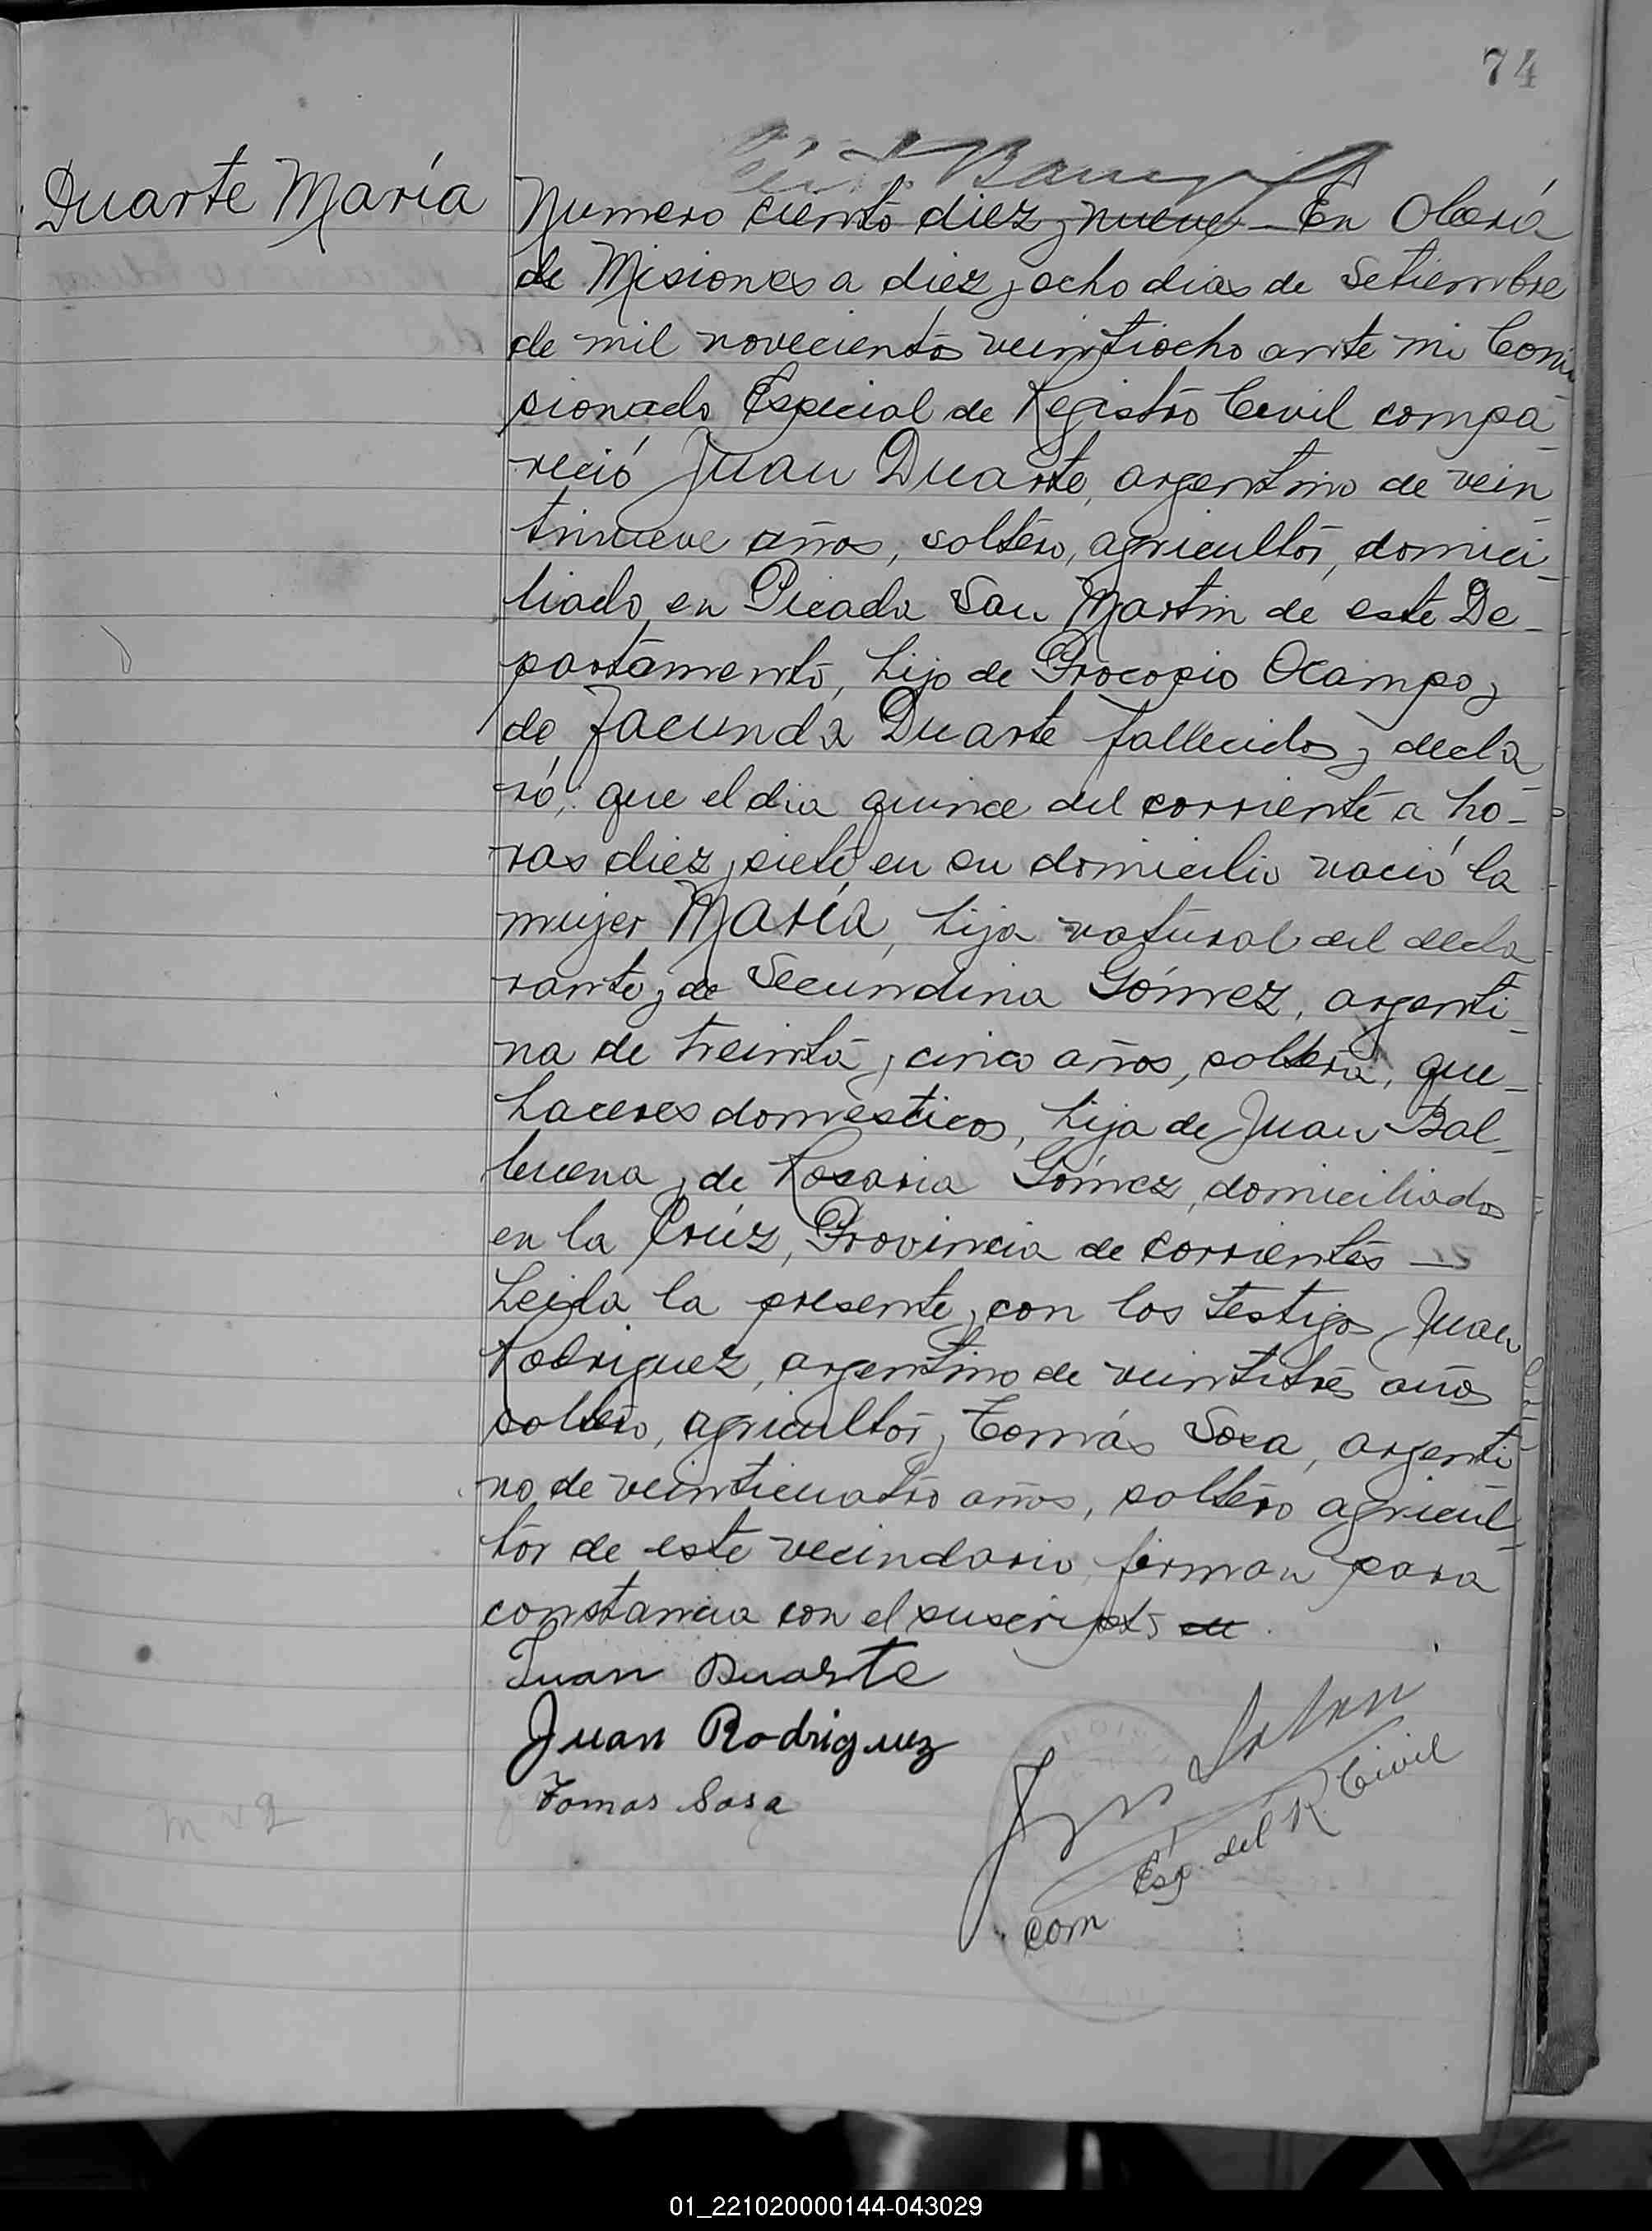 74
Duarte María
Numero ciento diez y nueve - En Oberá
de Misiones a diez y ocho dias de Setiembre
de mil novecientos veintiocho ante mi Comi
sionado Especial de Registro Civil compa
reció Juan Duarte, argentino de vein
tinueve años, soltero, agricultor, domici-
liado en Picada San Martin de este De-
partamento, hijo de Procopio Ocampo y
de Facunda Duarte fallecidos y decla
ró: que el dia quince del corriente a ho-
ras diez y siete en su domicilio nació la
mujer María, hija natural del decla
rante y de Secundina Gómez, argenti-
na de treinta y cinco años, soltera, que-
haceres domésticos, hija de Juan Bal-
buena y de Rosaria Gómez, domiciliados
en la Crúz, Provincia de Corrientes —
Leida la presente y con los testigos Juan
Rodriguez, argentino de veintitrés años
soltero, agricultor y Tomás Sosa, argenti
no de veinticuatro años, soltero agricul-
tor de este vecindario firman para
constancia con el suscripto
Juan Duarte
Juan Rodriguez
Tomas Sosa
Com Esp. del R. Civil
01_221020000144-043029